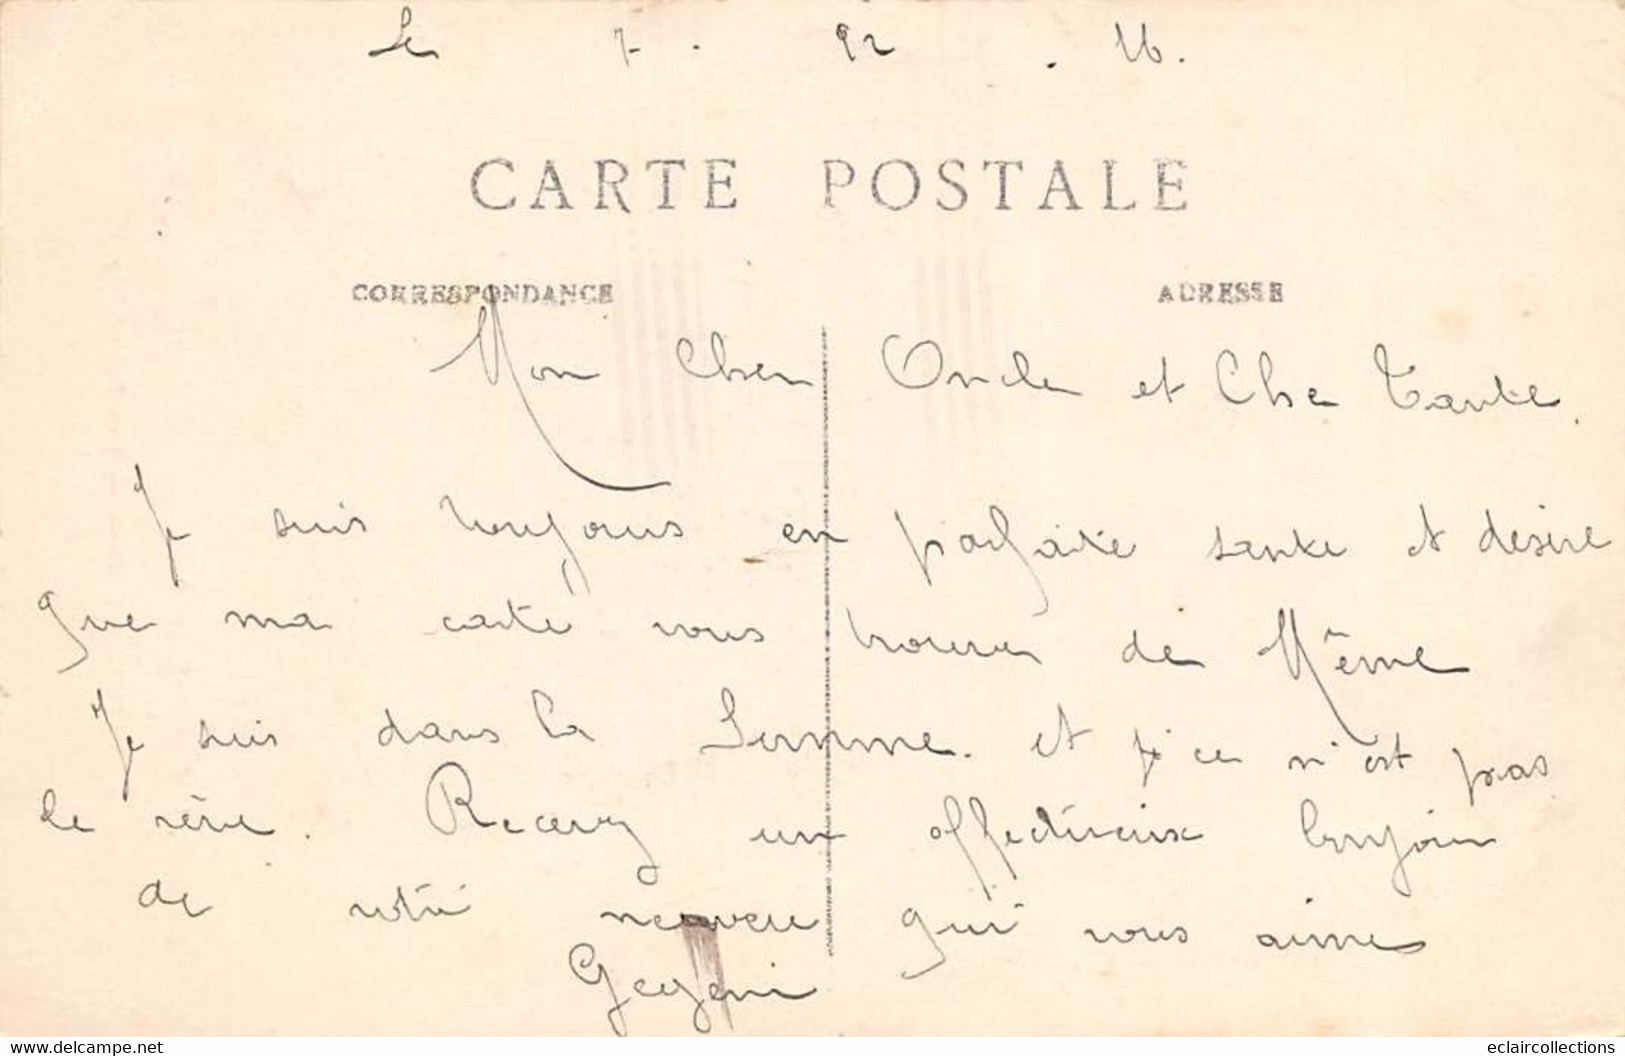 Le 7. 92 . 16.
CARTE POSTALE
CORRESPONDANCE
ADRESSE
Mon Cher Oncle et Che Tante.
Je suis toujours en parfaite sante et désire
que ma carte vous trouve de Même
Je suis dans la Somme. et ce n'est pas
le rêve. Recevez un affectueux bonjour
de votre neuveu qui vous aime
delcampe.net
eclaircollections